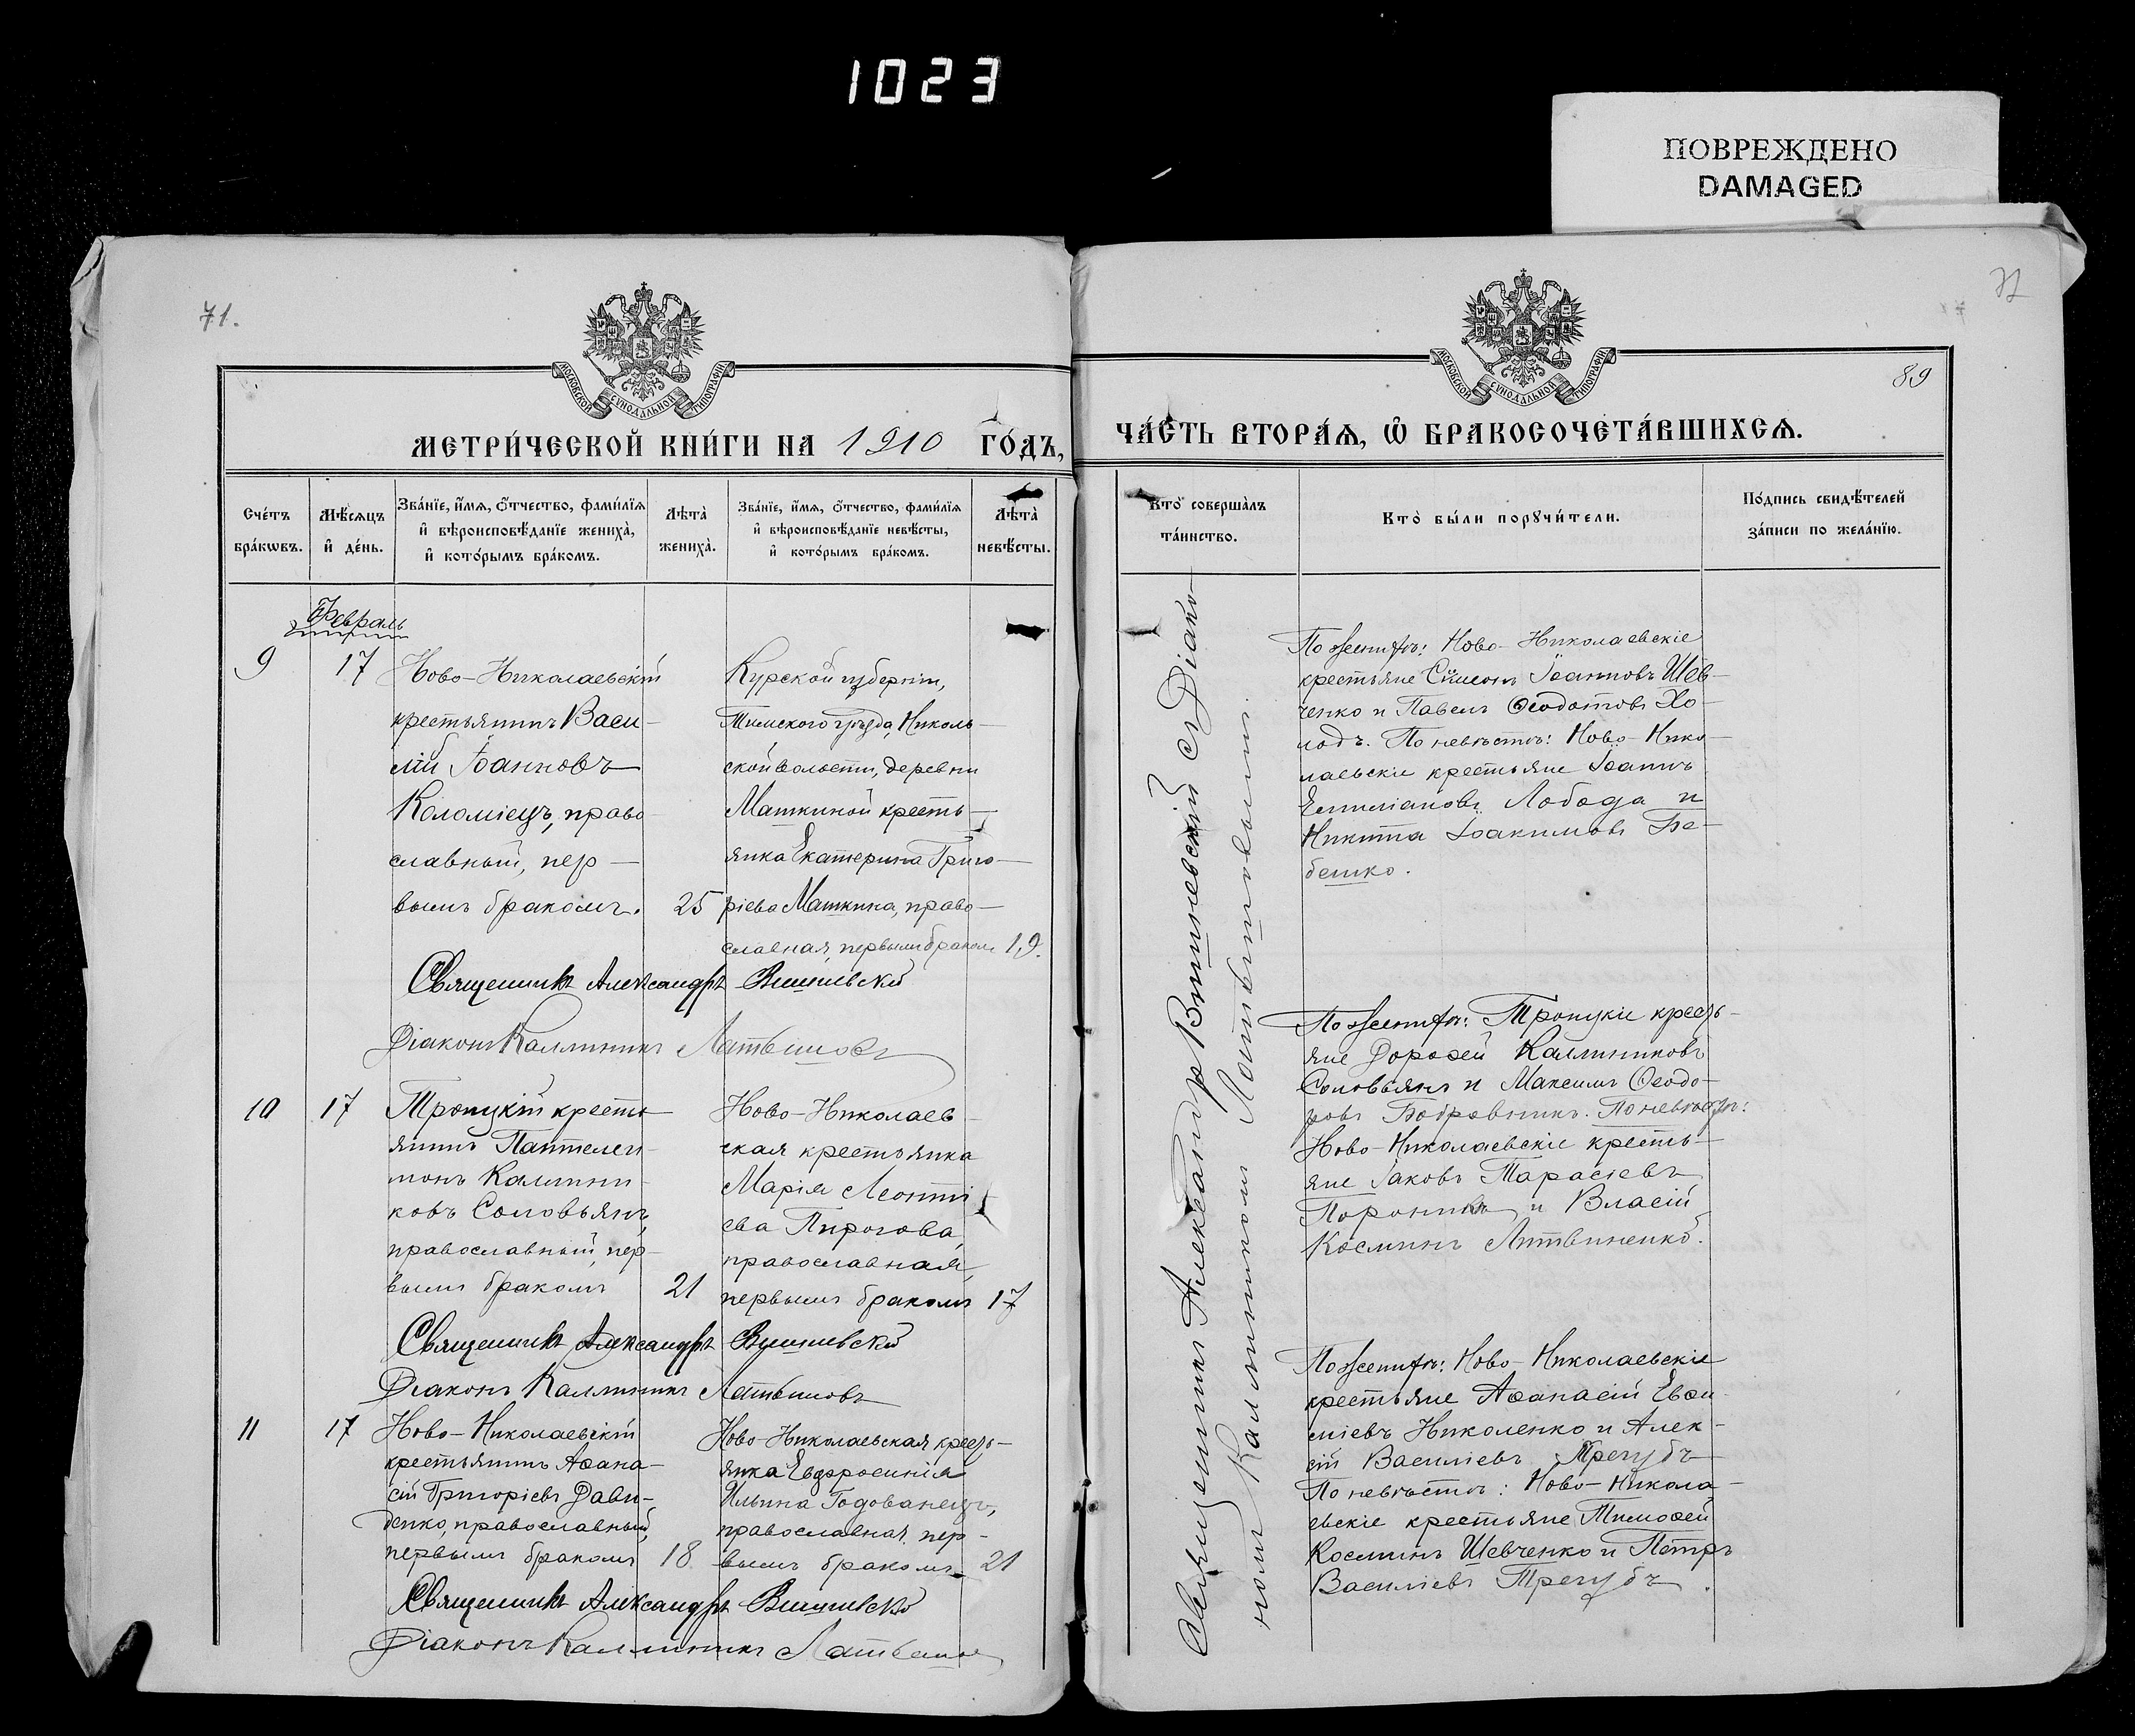 1023
ПОВРЕЖДЕНО
DAMAGED
71.
МОСКОВСКОЙ СѴНОДАЛЬНОЙ ТИПОГРАФІИ
МЕТРИ́ЧЕСКОЙ КНИ́ГИ НА 1910 ГО́ДЪ,
Сче́тъ бра́кѡвъ.
Мѣ́сяцъ и҆ де́нь.
Зва́нїе, и҆́мѧ, ѻ҆́тчество, фами́лїѧ
и҆ вѣроисповѣ́данїе жениха̀,
и҆ кото́рымъ бра́комъ.
Лѣта̀ жениха̀.
Зва́нїе, и҆́мѧ, ѻ҆́тчество, фами́лїѧ
и҆ вѣроисповѣ́данїе невѣ́сты,
и҆ кото́рымъ бра́комъ.
Лѣта̀ невѣ́сты.
Февраль
9
17
Ново-Николаевскій
крестьянинъ Васи-
лій Іоанновъ
Коломіецъ, право-
славный, пер-
вымъ бракомъ.
25
Курской губерніи,
Тимскаго уѣзда, Николь-
ской волости, деревни
Машкиной кресть-
янка Екатерина Григо-
ріева Машкина, право-
славная, первымъ бракомъ
19.
Священникъ Александръ Вишневскій
Діаконъ Каллиникъ Латвиновъ
10
17
Троицкій кресть-
янинъ Пантелеи-
монъ Каллини-
ковъ Соловьянъ,
православный, пер-
вымъ бракомъ
21
Ново-Николаев-
ская крестьянка
Марія Леонті-
ева Пирогова,
православная,
первымъ бракомъ
17
Священникъ Александръ Вишневскій
Діаконъ Каллиникъ Латвиновъ
11
17
Ново-Николаевскій
крестьянинъ Аѳана-
сій Григоріевъ Дави-
денко, православный,
первымъ бракомъ
18
Ново-Николаевская кресть-
янка Евдфросинія
Ильина Годованецъ,
православная, пер-
вымъ бракомъ
21
Священникъ Александръ Вишневскій
Діаконъ Каллиникъ Латвиновъ
72
89
МОСКОВСКОЙ СѴНОДАЛЬНОЙ ТИПОГРАФІИ
ЧА́СТЬ ВТОРА́Ѧ, Ѽ БРАКОСОЧЕТА́ВШИХСѦ.
Кто̀ соверша́лъ
та́инство.
Кто̀ бы́ли порꙋчи́тели.
По́дпись свидѣ́телей
за́писи по жела́нїю.
Священникъ Александръ Вишневскій съ Діако-
номъ Каллиникомъ Латвиновымъ.
По женихѣ: Ново-Николаевскіе
крестьяне Сѵмеонъ Іоанновъ Шев-
ченко и Павелъ Ѳеодотовъ Хо-
лодъ. По невѣстѣ: Ново-Нико-
лаевскіе крестьяне Іоаннъ
Емиліановъ Лобода и
Никита Іоакимовъ Бе-
бешко.
По женихѣ: Троицкіе кресть-
яне Дороѳей Каллиниковъ
Соловьянъ и Максимъ Ѳеодо-
ровъ Бобровникъ. По невѣстѣ:
Ново-Николаевскіе кресть-
яне Іаковъ Тарасіевъ
и Власій
Косминъ Литвиненко.
По женихѣ: Ново-Николаевскіе
крестьяне Аѳанасій Евѳи-
міевъ Николенко и Алек-
сій Василіевъ Трегубъ
По невѣстѣ: Ново-Никола-
евскіе крестьяне Тимоѳей
Косминъ Шевченко и Петръ
Василіевъ Трегубъ.